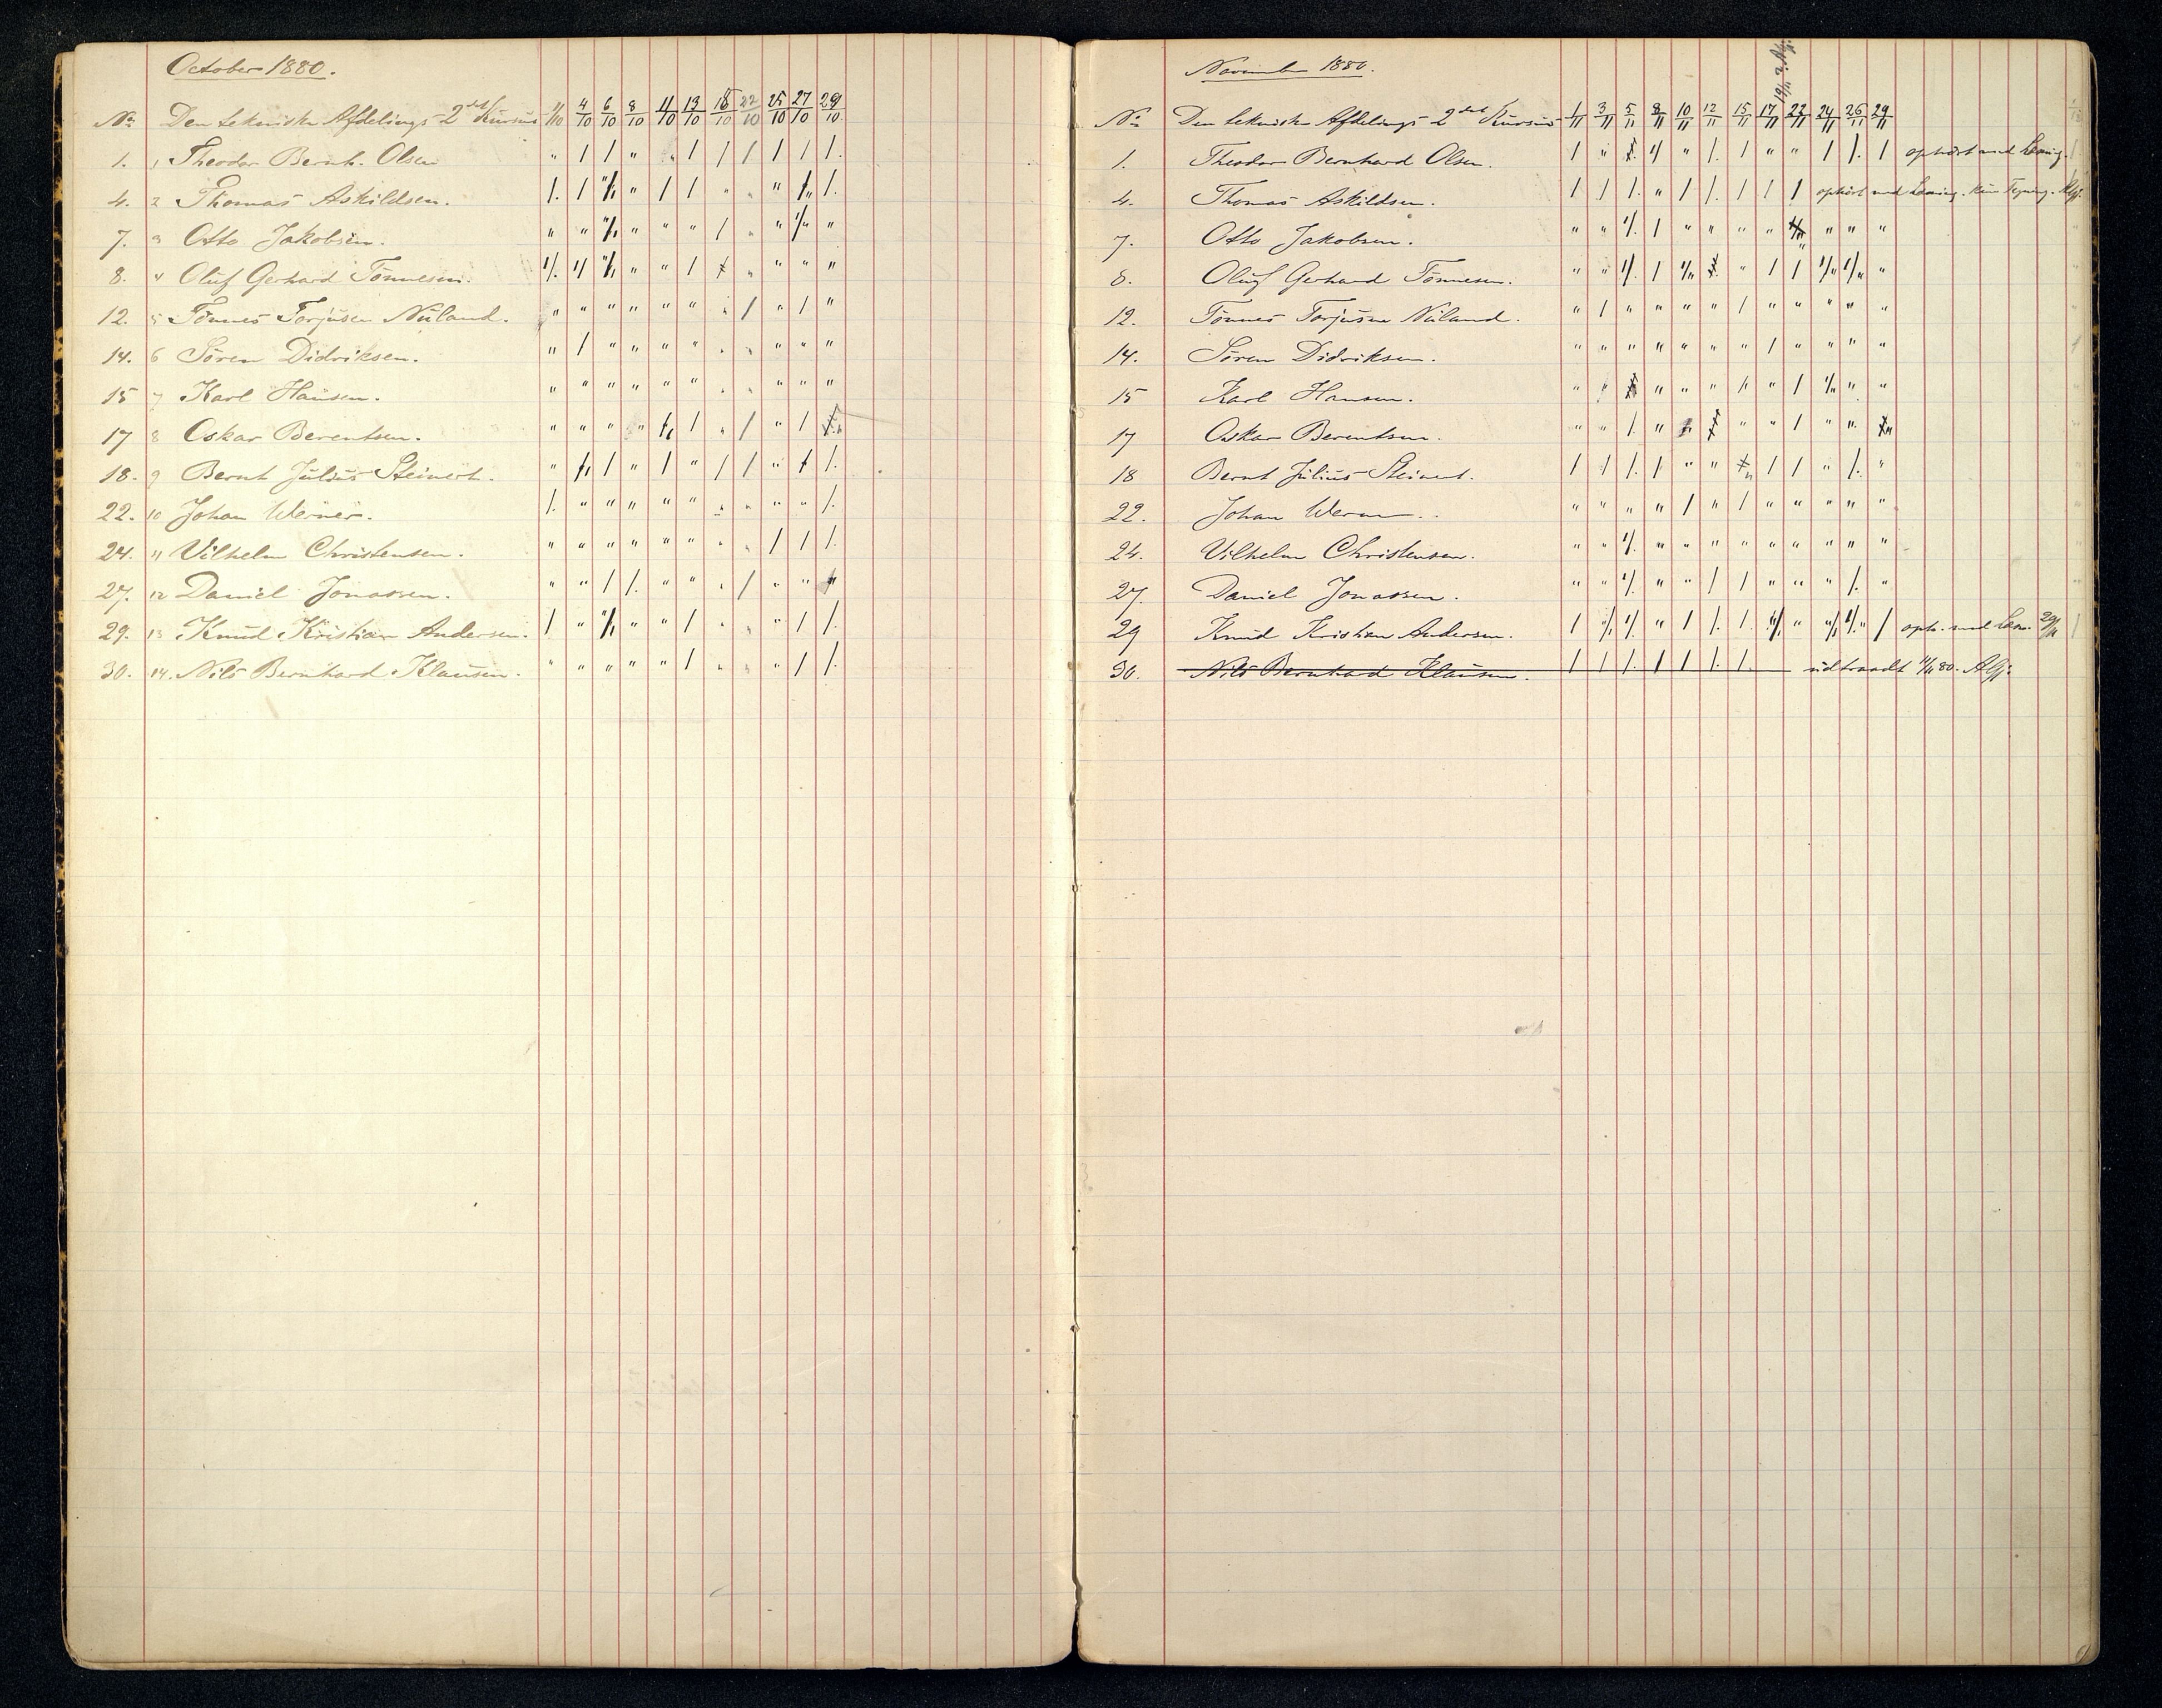 October 1880.
No Den tekniske Afdelings 2det Kursus 1/10 4/10 6/10 8/10 11/10 13/10 18/10 22/10 25/10 27/10 29/10
1. 1 Theodor Bernh. Olsen " / / " " / / / / / /.
4. 2 Thomas Askildsen.
7. 3 Otto Jakobsen.
8. 4 Oluf Gerhard Tönnesen.
12. 5 Tönnes Torjusen Nuland. " " " " " " " / " / "
14. 6 Sören Didriksen. " / " " " " " " " " "
15 7 Karl Hansen. " " " " " " " " " " "
17 8 Oskar Berentsen.
18. 9 Bernt Julius Steinert.
22. 10 Johan Werner. /. " " " " " " " " " /.
24. 11 Vilhelm Christensen. " " " " " " " " / / /.
27. 12 Daniel Jonassen.
29. 13 Knud Kristian Andersen.
30. 14. Nils Bernhard Klausen. " " " " " / " " " / /.
November 1880.
No Den tekniske Afdelings 2det Kursus 1/11 3/11 5/11 8/11 10/11 12/11 15/11 17/11 22/11 24/11 26/11 29/11
1. Theodor Bernhard Olsen. ophört med Læsning.
4. Thomas Askildsen. / / /. " / /. / / / ophört med Læsning. kun Tegning.
7. Otto Jakobsen.
8. Oluf Gerhard Tönnesen.
12. Tönnes Torjusen Nuland. " / " " " " / " " " " "
14. Sören Didriksen. " " " " " " " / " " " "
15 Karl Hansen.
17 Oskar Berentsen.
18 Bernt Julius Steinert.
22. Johan Werner. " " " " / " / " " " " "
24. Vilhelm Christensen.
27. Daniel Jonassen.
29 Knud Kristian Andersen. oph. med Læsn. 29/11
30. Nils Bernhard Klausen. / / /. / / /. /. udtraadt 11/11 80.